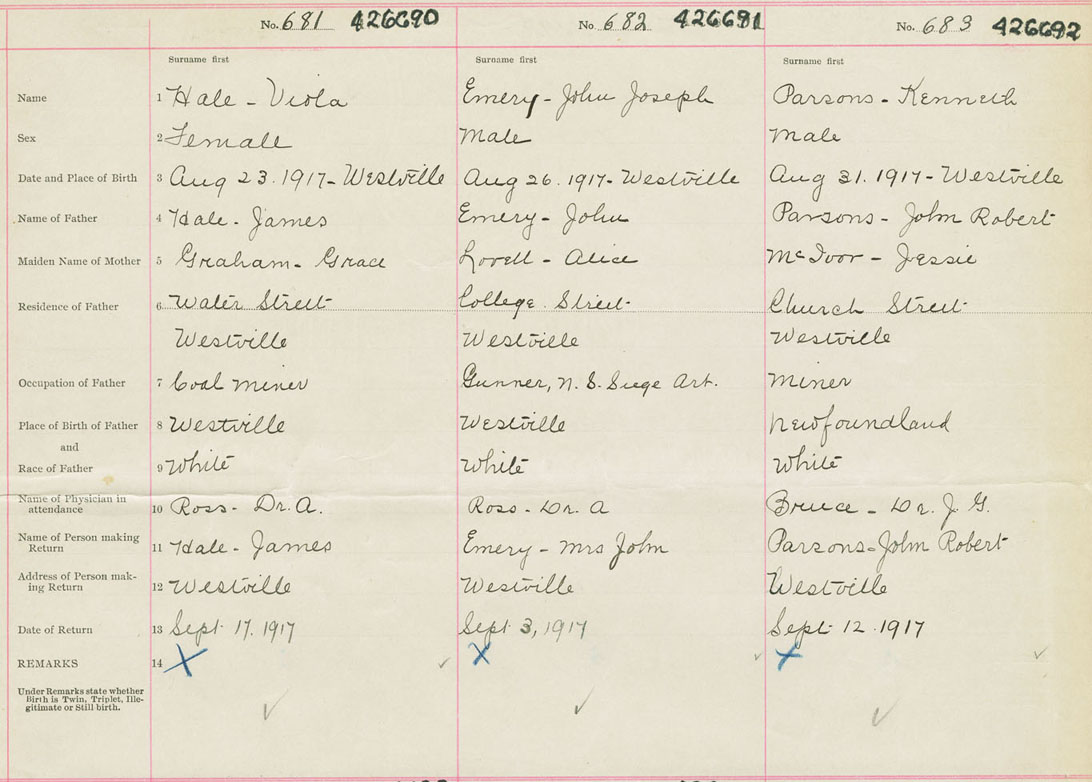 No. 681 426690 No. 682 426691 No. 683 426692
Surname first Surname first Surname first
Name 1 Hale - Viola Emery - John Joseph Parsons - Kenneth
Sex 2 Female Male Male
Date and Place of Birth 3 Aug 23. 1917 - Westville Aug 26. 1917 - Westville Aug 31. 1917 - Westville
Name of Father 4 Hale - James Emery - John Parsons - John Robert
Maiden Name of Mother 5 Graham - Grace Lovell - Alice McIvor - Jessie
Residence of Father 6 Water Street College Street Church Street
Westville Westville Westville
Occupation of Father 7 Coal Miner Gunner, N. S. Siege Art. Miner
Place of Birth of Father 8 Westville Westville Newfoundland
and
Race of Father 9 White White White
Name of Physician in
attendance 10 Ross - Dr. A. Ross - Dr. A Bruce - Dr. J. G.
Name of Person making
Return 11 Hale - James Emery - Mrs John Parsons - John Robert
Address of Person mak-
ing Return 12 Westville Westville Westville
Date of Return 13 Sept 17. 1917 Sept 3, 1917 Sept 12. 1917
REMARKS 14 X X X
Under Remarks state whether
Birth is Twin, Triplet, Ille-
gitimate or Still birth.